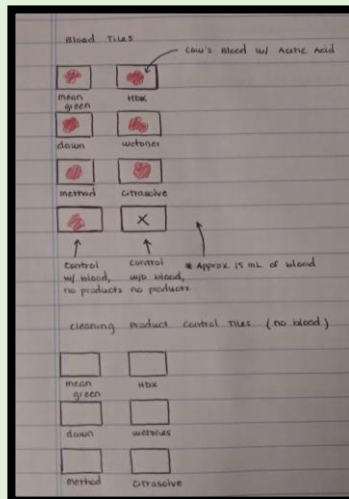 Blood Tiles
Cow's Blood w/ Acetic Acid
mean green
HDX
dawn
wetones
method
citrasolve
X
control w/ blood, no products
control w/o blood, no products
* Approx 15 mL of blood
cleaning product control tiles (no blood)
mean green
HDX
dawn
wetones
method
citrasolve